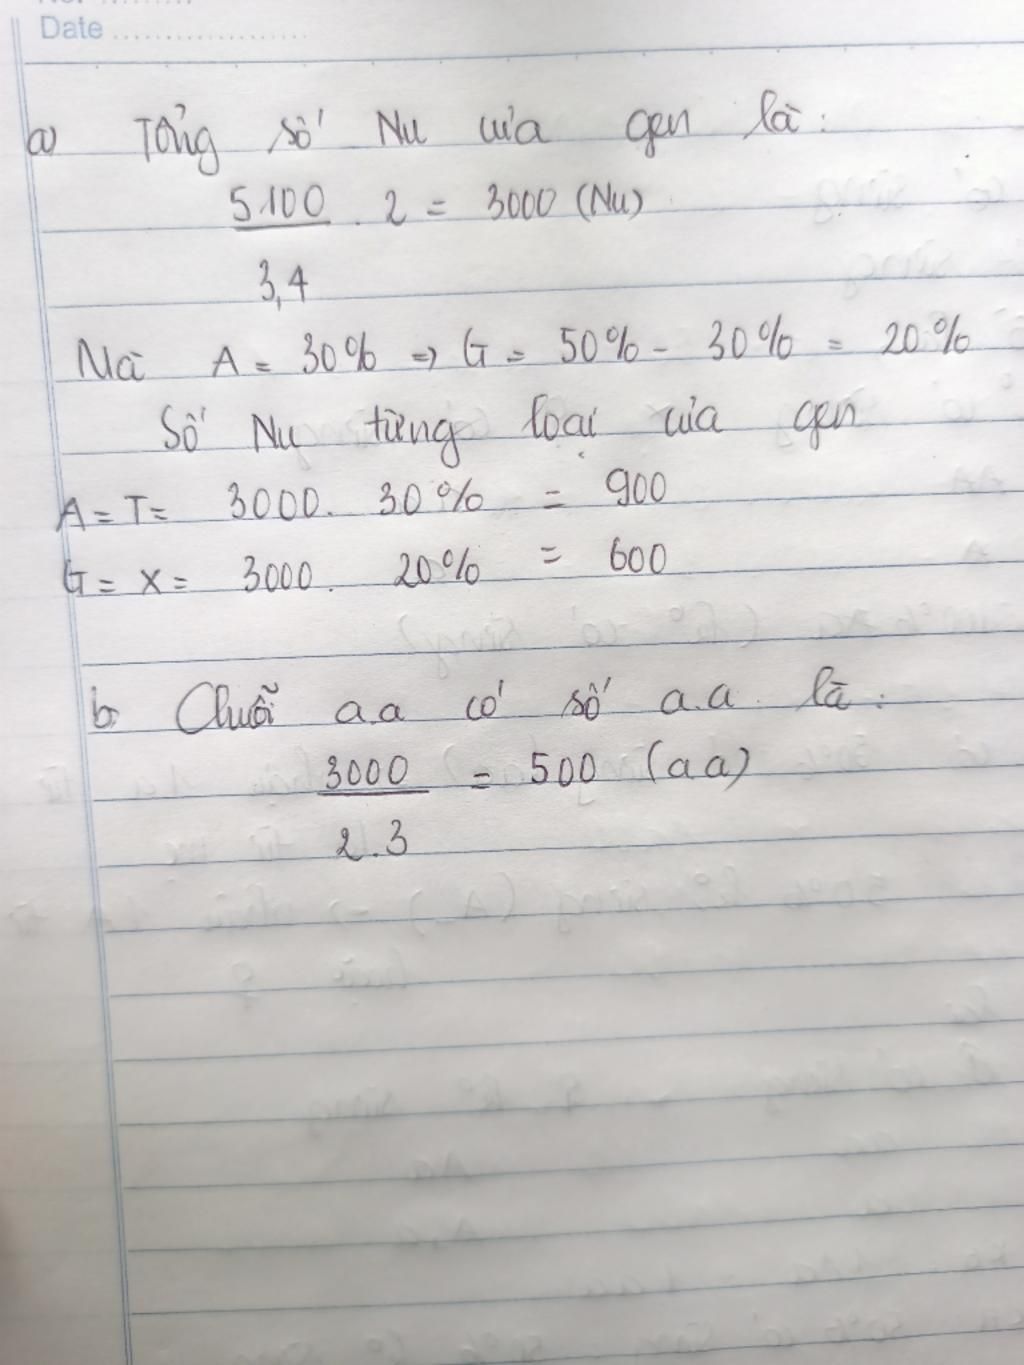 Date ....................
a) Tổng số Nu của gen là :
5100 . 2 = 3000 (Nu)
3,4
Mà A = 30% => G = 50% - 30% = 20%
Số Nu từng loại của gen
A = T = 3000. 30% = 900
G = X = 3000. 20% = 600
b, Chuỗi a.a có số a.a là :
3000 = 500 (aa)
2.3